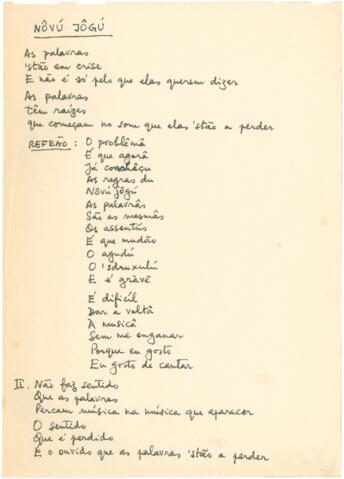 NÔVÚ JÔGÚ
As palavras
'stão em crise
E não é só pelo que elas querem dizer
As palavras
têm raízes
que começam no som que elas 'stão a perder
REFRÃO : O problêmâ
É que agorâ
Já conhêçu
As regras du
Nôvú jôgú
As palavrâs
São as mesmâs
Os assentús
É que mudão
O agudú
O 'sdruxulú
E é gràvê
É difícil
Dar a voltâ
À musicâ
Sem me enganar
Porque eu gosto
Eu gosto de cantar
II. Não faz sentido
Que as palavras
Percam música na música que aparecer
O sentido
Que é perdido
É o ouvido que as palavras 'stão a perder